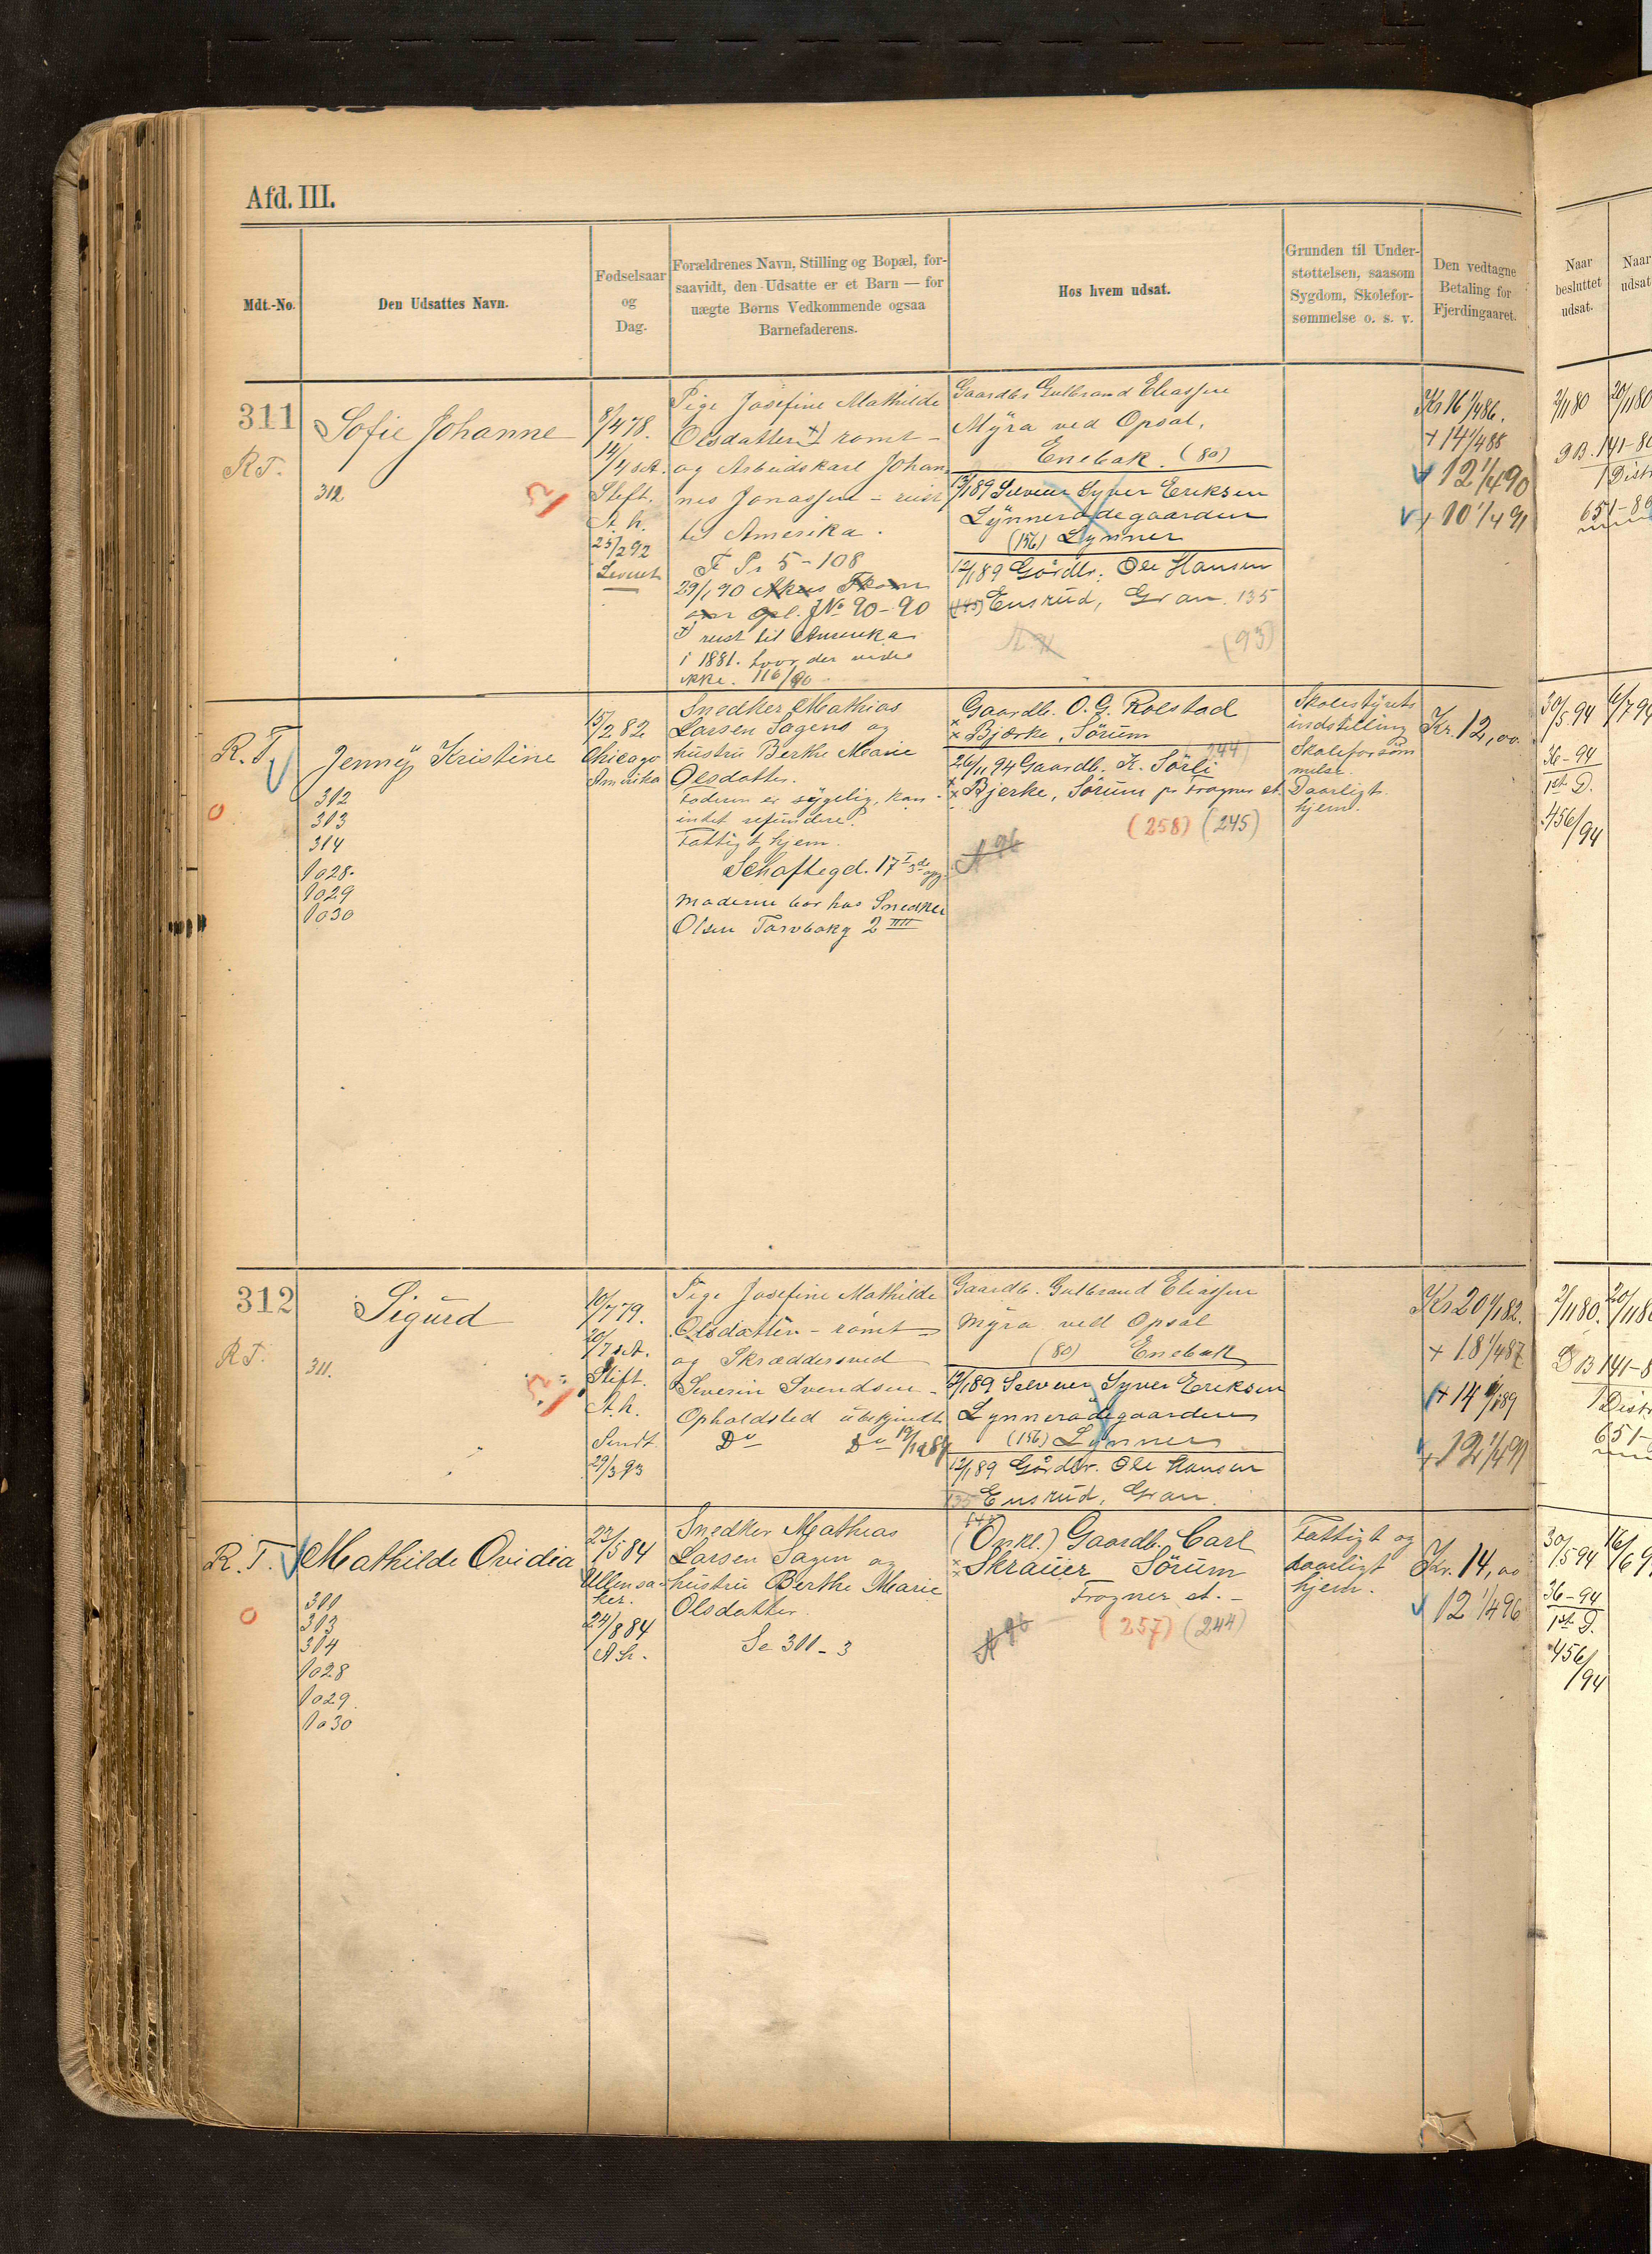 Afd. III.
Mdt.-No.
Den Udsattes Navn.
Fødselsaar
og
Dag.
Forældrenes Navn, Stilling og Bopæl, for-
saavidt, den Udsatte er et Barn — for
uægte Børns Vedkommende ogsaa
Barnefaderens.
Hos hvem udsat.
Grunden til Under-
støttelsen, saasom
Sygdom, Skolefor-
sømmelse o. s. v.
Den vedtagne
Betaling for
Fjerdingaaret.
Naar
besluttet
udsat.
Naar
udsat
311
R.T.
Sofie Johanne
312
8/4 78.
14/4 s.A.
Stift.
A. h.
25/2 92
Leveret
Pige Josefine Mathilde
Olsdatter +) rømt -
og Arbeidskarl Johan-
nes Jonassen - reist
til Amerika.
F Pr 5-108
29/1 90
opl. J No 90-90
+) reist til Amerika
i 1881. hvor der vides
ikke. 116/90
Gaardbr Gulbrand Eliassen
Myra ved Opsal,
Enebak. (80)
12/1 89 Selveier Syver Eriksen
Lynnerødegaarden
(156) Lynner
12/1 89 Gårdbr. Ole Hansen
Ensrud, Gran. 135
(93)
Kr 16 1/4 86.
+ 14 1/4 88
+ 12 1/4 90
+ 10 1/4 91
2/11 80
20/11 80
141-8
1 Distr
651-8
R.T.
Jenny Kristine
312
313
314
1028.
1029
1030
15/2 82
Chicago
Amerika
Snedker Mathias
Larsen Sagens og
hustru Berthe Marie
Olsdatter.
Faderen er sygelig, kan
intet refundere.
Fattigt hjem.
Schaftegd. 17 I 3de opg.
Moderen bor hos Snedker
Olsen Torvbakg 2 III
Gaardb. O. G. Rolstad
Bjørke, Sørum
(244)
26/11 94 Gaardb. K. Sørli
Bjerke, Sørum pr Frogner st.
(258) (245)
A 96
Skolestyrets
indstilling
Skoleforsøm
melse.
Daarligt
hjem.
Kr. 12,00
30/5 94
6/7 94
36-94
1st D.
456/94
312
R.T.
Sigurd
311.
10/7 79.
20/7 s.A.
Stift.
A. h.
Sendt
29/3 93
Pige Josefine Mathilde
Olsdatter - rømt -
og Skræddersvend
Severin Svendsen -
Opholdsted ubekjendt
Do Do
Gaardb. Gulbrand Eliassen
Myra ved Opsal
(80) Enebak
12/1 89 Selveier Syver Eriksen
Lynnerødegaarden
(156) Lynner
12/1 89 Gårdbr. Ole Hansen
135 Ensrud, Gran.
Kr 20 1/1 82.
+ 18 1/4 87
+ 14 1/1 89
+ 12 1/4 91
2/11 80.
20/11 80
D B 141-8
1 Distr
651-
R.T.
Mathilde Ovidia
311
313
314
1028
1029.
1030
23/5 84
Ullensa-
ker.
24/8 84
A h.
Snedker Mathias
Larsen Sagen og
hustru Berthe Marie
Olsdatter.
Se 311-3
(Onkl.) Gaardb. Carl
Skrauer Sørum
Frogner st. -
(257) (244)
A 96
Fattigt og
daarligt
hjem.
Kr. 14,00
12 1/4 96
30/5 94
16/6 9
36-94
1st D.
456/94